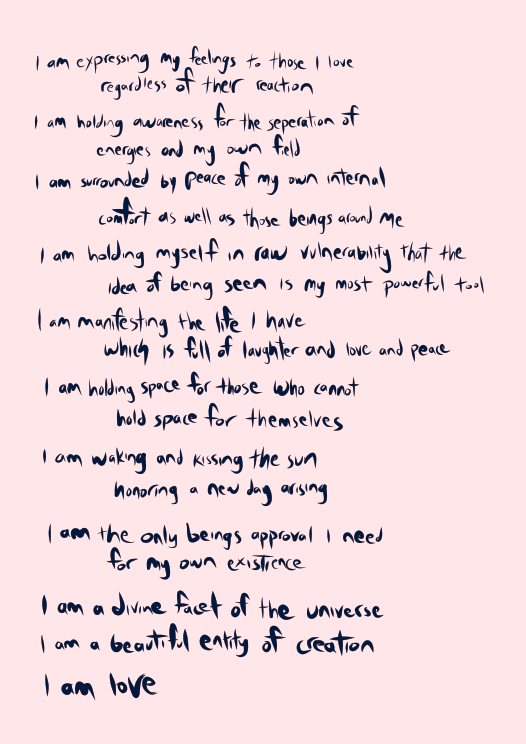 I am expressing my feelings to those I love
regardless of their reaction
I am holding awareness for the seperation of
energies and my own field
I am surrounded by peace of my own internal
comfort as well as those beings around me
I am holding myself in raw vulnerability that the
idea of being seen is my most powerful tool
I am manifesting the life I have
which is full of laughter and love and peace
I am holding space for those who cannot
hold space for themselves
I am waking and kissing the sun
honoring a new day arising
I am the only beings approval I need
for my own existience
I am a divine facet of the universe
I am a beautiful entity of creation
I am love